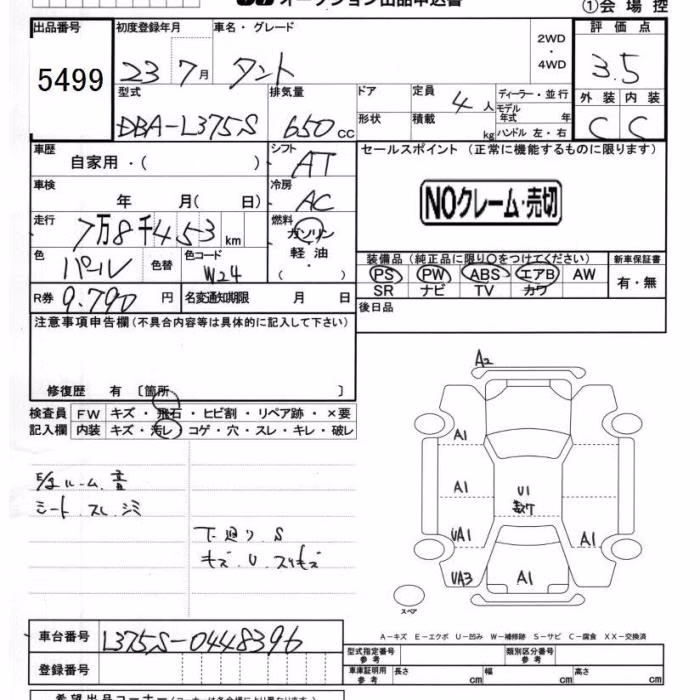 オークション出品申込書
①会場控
出品番号 初度登録年月 車名・グレード 2WD・4WD 評価点
5499 23 7月 タント 3.5
型式 排気量 ドア 定員 4人 ディーラー・並行 外装 内装
DBA-L375S 650cc 形状 積載 kg モデル年式 年 ハンドル 左・右 C C
車歴 自家用・( ) シフト AT セールスポイント (正常に機能するものに限ります)
車検 年 月( 日) 冷房 AC
NOクレーム・売切
走行 7万8千453km 燃料 ガソリン・軽油・( )
色 パール 色替 色コード W24 装備品 (純正品に限り○をつけてください) 新車保証書
PS PW ABS エアB AW 有・無
SR ナビ TV カワ
R券 9.790円 名変通知期限 月 日 後日品
注意事項申告欄(不具合内容等は具体的に記入して下さい)
修復歴 有〔箇所 〕
検査員 FW キズ・飛石・ヒビ割・リペア跡・×要
記入欄 内装 キズ・汚レ・コゲ・穴・スレ・キレ・破レ
S
A2
A1
A1 U1
UA1 A1
UA3 A1
ルーム
シート スレ シミ
下廻り S
キズ U スリキズ
スペア
A-キズ E-エクボ U-凹み W-補修跡 S-サビ C-腐食 XX-交換済
車台番号 L375S-0448396
型式指定番号 参考 類別区分番号 参考
登録番号 車庫証明用 参考 長さ cm 幅 cm 高さ cm
希望出品コーナー